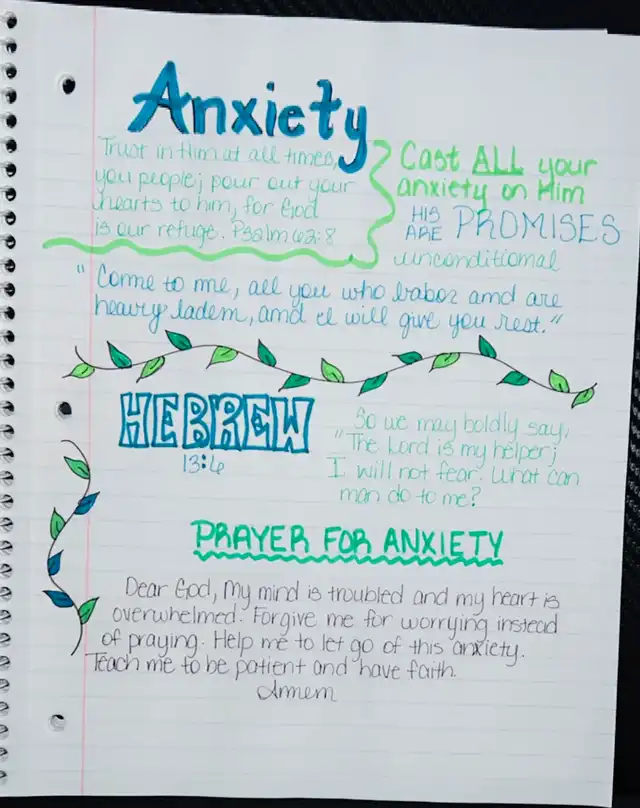 Anxiety
Trust in Him at all times,
you people; pour out your
hearts to him, for God
is our refuge. Psalm 62:8
Cast ALL your
anxiety on Him
HIS
ARE PROMISES
unconditional
"Come to me, all you who labor and are
heavy laden, and I will give you rest."
HEBREW
13:6
So we may boldly say,
"The Lord is my helper;
I will not fear. What can
man do to me?
PRAYER FOR ANXIETY
Dear God, My mind is troubled and my heart is
overwhelmed. Forgive me for worrying instead
of praying. Help me to let go of this anxiety.
Teach me to be patient and have faith.
Amem